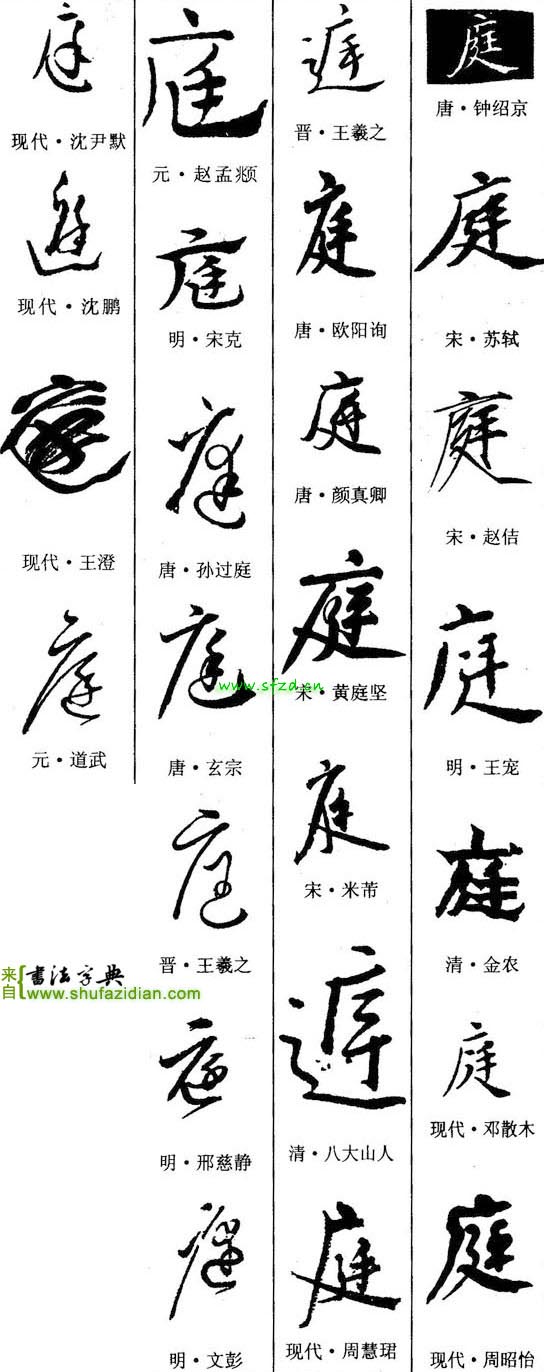 庭
唐·钟绍京
庭
宋·苏轼
庭
宋·赵佶
庭
明·王宠
庭
清·金农
庭
现代·邓散木
庭
现代·周昭怡
庭
晋·王羲之
庭
唐·欧阳询
庭
唐·颜真卿
庭
宋·黄庭坚
庭
宋·米芾
庭
清·八大山人
庭
现代·周慧珺
庭
元·赵孟頫
庭
明·宋克
庭
唐·孙过庭
庭
唐·玄宗
庭
晋·王羲之
庭
明·邢慈静
庭
明·文彭
庭
现代·沈尹默
庭
现代·沈鹏
庭
现代·王澄
庭
元·道武
www.sfzd.cn
来自{书法字典
www.shufazidian.com